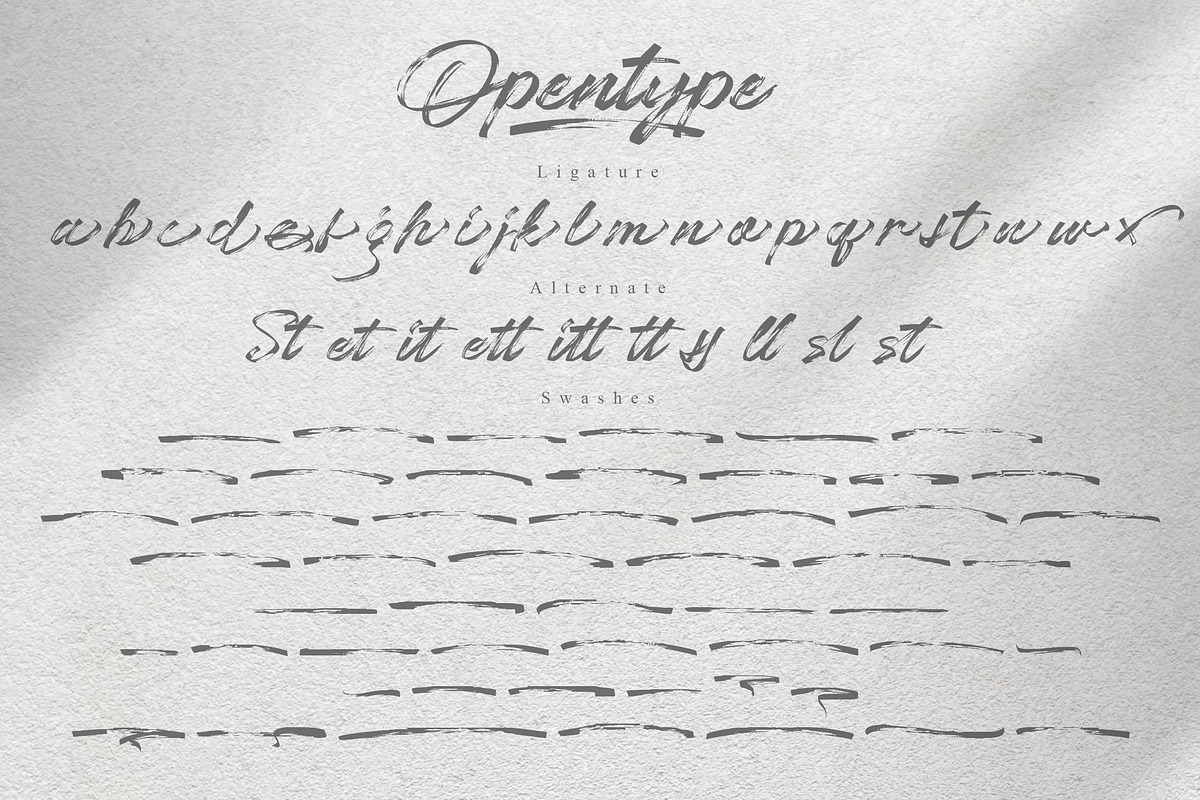 Opentype
Ligature
a b c d e f g h i j k l m n o p q r s t u w x
Alternate
St et it ett itt tt ll sl st
Swashes